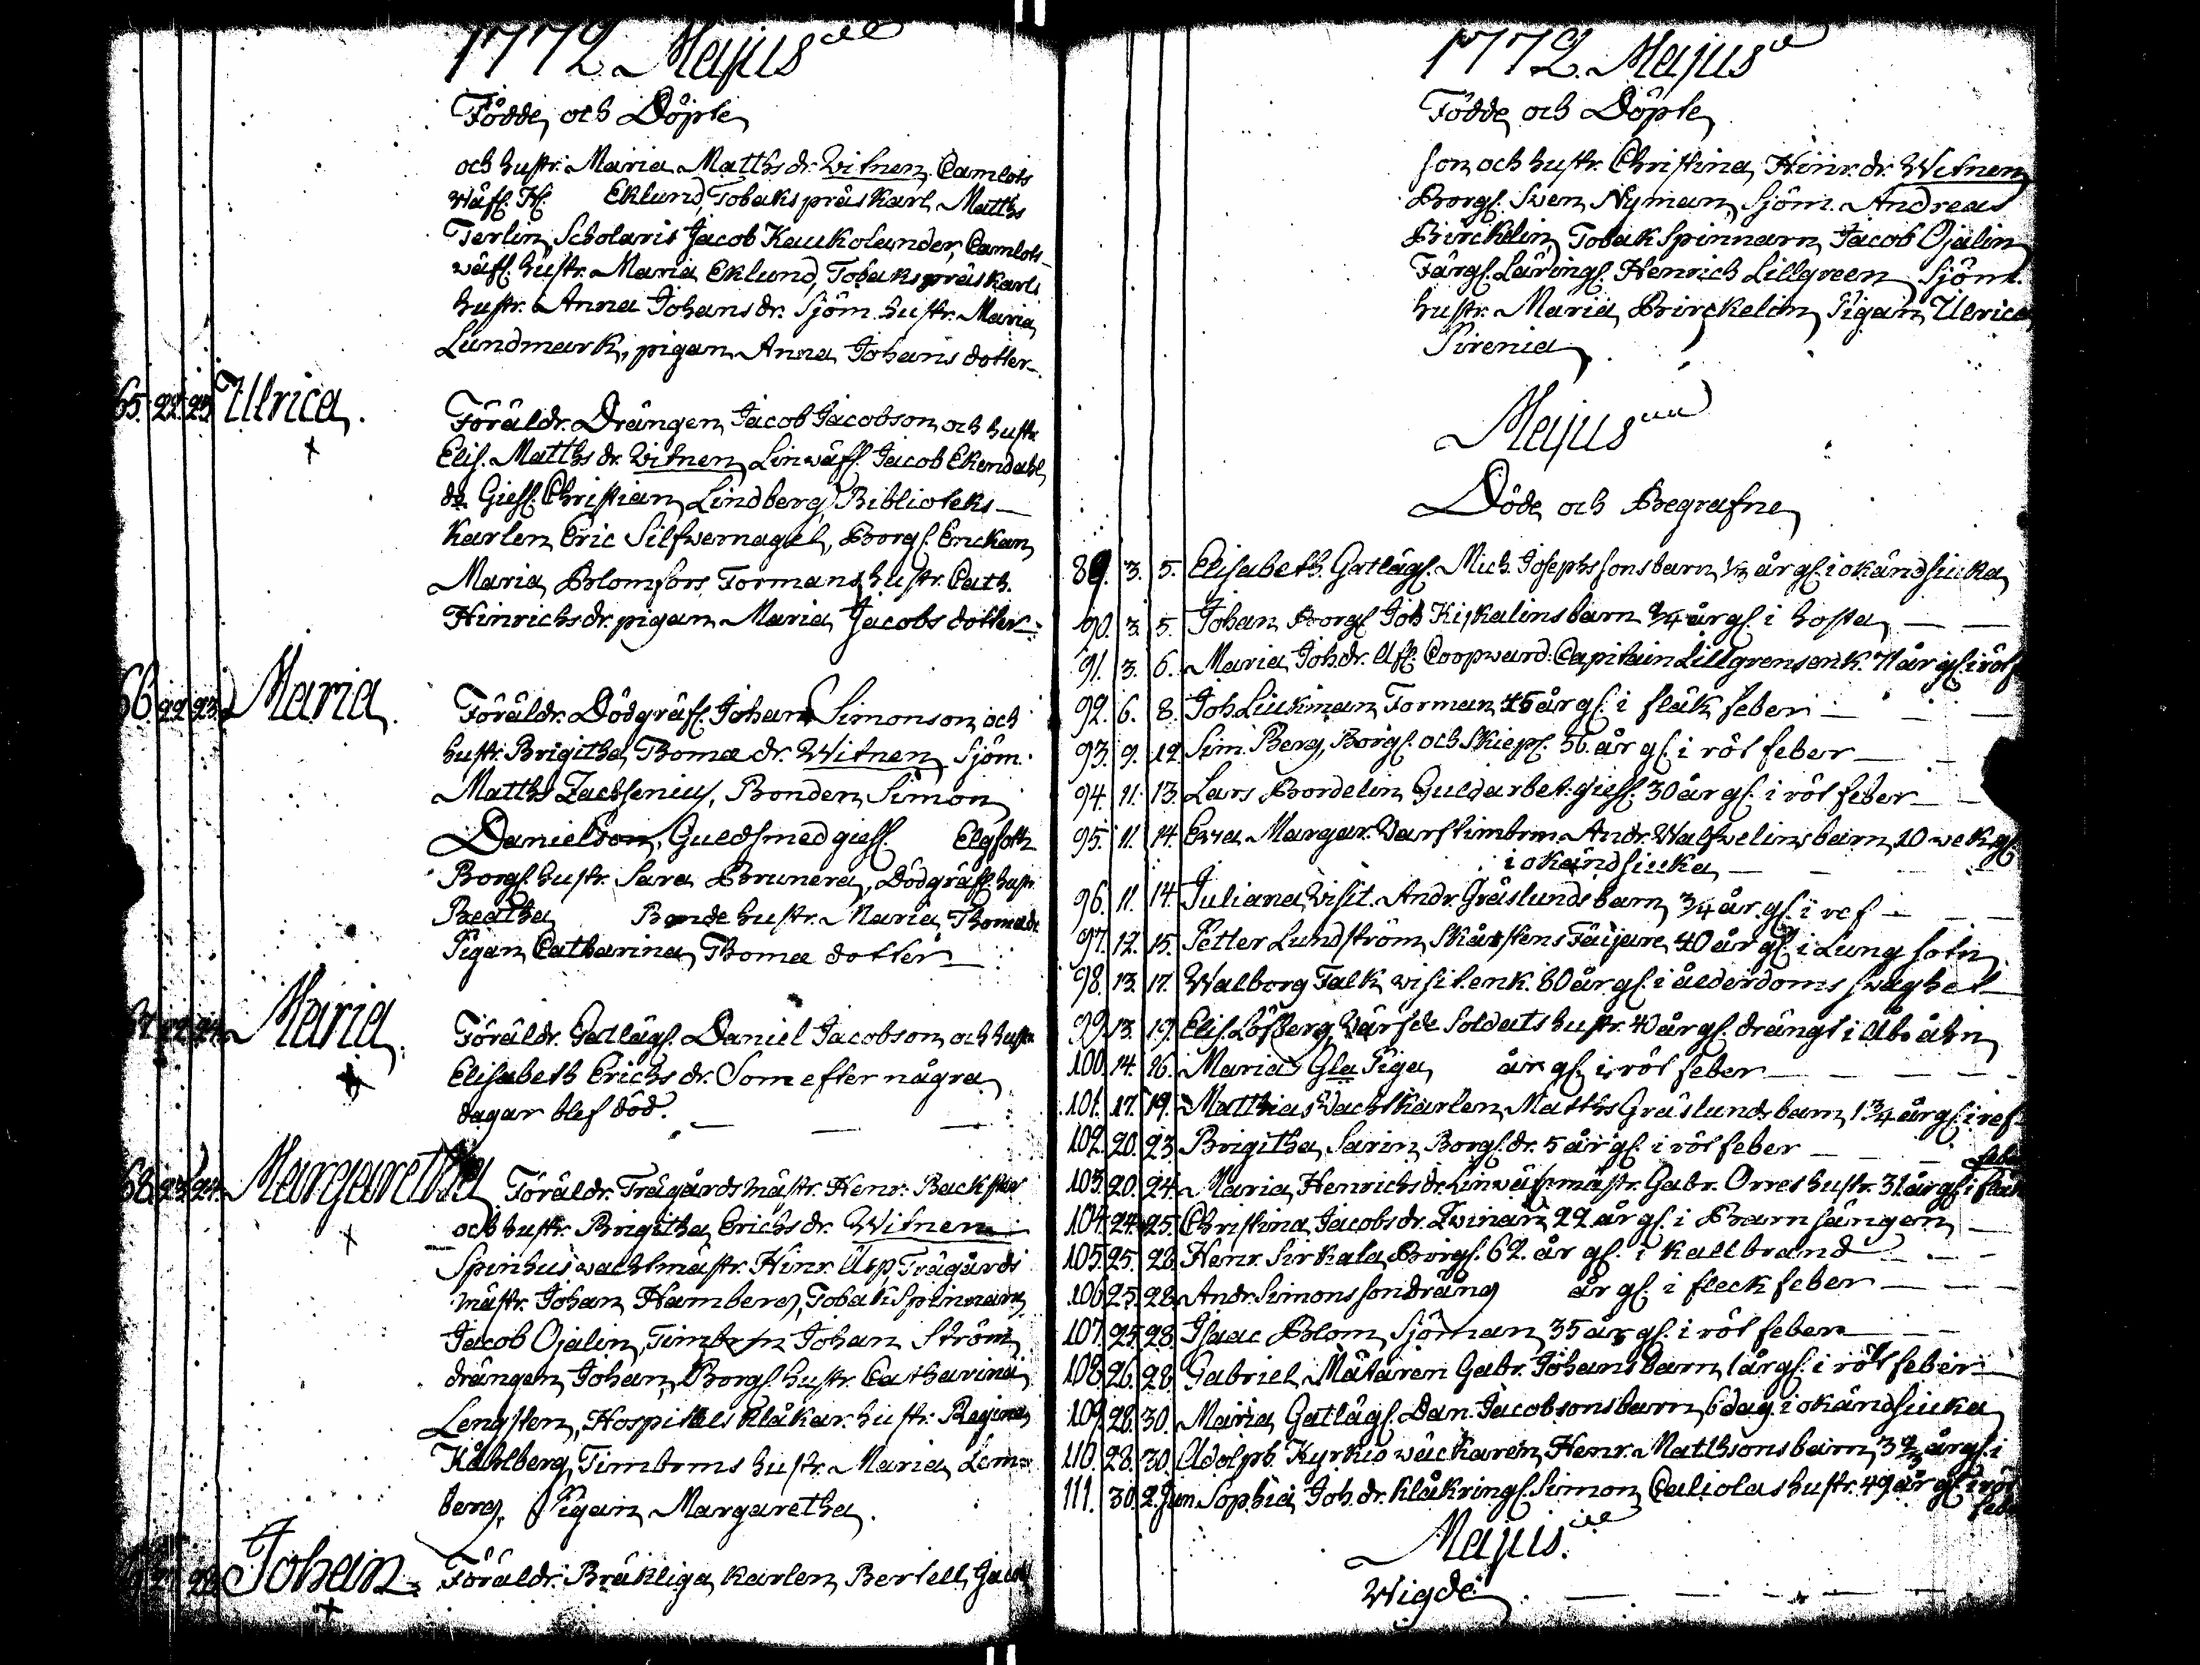 1772 Majus
Födde och Döpte
och hustr. Maria Matths dr. Witnen Camlots
wäfs. Hs. Eklund, Tobaks präskarl Matths
Terlin, Scholaris Jacob Kaukolander, Camlots-
wäfs. hustr. Maria Eklund, Tobaks präskarls
hustr. Anna Johans dr. Sjöm. hustr. Maria
Lundmark, pigan Anna Johans dotter.
65. 22. 23. Ulrica.
Föräldr. Drängen Jacob Jacobson och hustr.
Elis. Matths dr. Witnen Linwäfs. Jacob Ekendahl
do Giess. Christian Lindberg, Biblioteks
Karlen Eric Silfwernagel, Borgs. Enckan
Maria Blomfors Formans hustr. Cath.
Hinrichs dr. pigan Maria Jacobs dotter
66. 22. 23. Maria.
Föräldr. Dödgräfs. Johan Simonson och
hustr. Brigitha Thomæ dr. Witnen Sjöm.
Matths Zachsenius, Bonden Simon
Danielson, Guldsmed giess. Elgfoth
Borgs. hustr. Sara Brunera, Dödgräfs. hustr.
Beatha Bonde hustr. Maria Thomædr.
Pigan Catharina Thomæ dotter
67. 22. Maria.
Föräldr. Gatlägs. Daniel Jacobson och hustr.
Elisabeth Erichs dr. Som efter några
dagar blef död.
68. 23. 24. Margaretha
Föräldr. Trägårds mästr. Henr. Backster
och hustr. Brigitha Erichs dr. Witnen
Spinhus wachtmästr. Hinr. Asp, Trägårds
mästr. Johan Hamberg, Tobak Spinnarn
Jacob Ojalin, Timbrm Johan Ström
drängen Johan, Borgs. hustr. Catharina
Lengsten, Hospitals Klåkar. hustr. Regina
Kåhlberg, Timbrms hustr. Maria Lim=
berg, Pigan Margaretha.
28. Johan.
Föräldr. Bräkliga karlen Bertell Jacobs
1772. Majus
Födde och Döpte
son och hustr. Christina Hinr. dr. Witnen
Borgs. Swen Nyman, Sjöm. Andreas
Birckelin, Tobak Spinnarn Jacob Ojalin
Färgs. Lärings. Henrich Lillgreen, Sjöm.
hustr. Maria Birckelin, Pigan Ulrica
Sirenia
Majus
Döde och Begrafne
89. 3. 5. Elisabeth. Gatlägs. Mich. Josephssons barn 1/3 år gs. i okänd siuka
90. 3. 5. Johan Borgs. Joh Kiskalins barn 3/4 år gs. i hosta
91. 3. 6. Maria Joh. dr. Afs. Coopward. Capitain Lillgrens enk. 71 år gs. i röt f
92. 6. 8. Joh Liukman Forman 45 år gs. i fläk feber
93. 9. 12. Sim. Berg, Borgs. och Skiep. 56 år gs. i röt feber
94. 11. 13. Lars Bordelin Guldarbet. giess. 30 år gs. i röt feber
95. 11. 14. Ewa Margar. Warfstimbrm. Andr. Walfwelins barn 10 wek. gs.
i okänd siuka
96. 11. 14. Juliana Visit. Andr. Gräslunds barn 3/4 år gs. i ref
97. 12. 15. Petter Lundström Skårstens Fäijare 40 år gs. i Lung sotn
98. 13. 17. Walborg Falk visit. enk. 80 år gs. i ålderdoms swaghet
99. 13. 17. Elis. Löfberg, Wärfde Soldats hustr. 40 år gs. drängt i Abo åhn
100. 14. 26. Maria Gla Piga år gs. i röt feber
101. 17. 19. Matthias Wachtkarlen Matths Gräslunds barn 1 3/4 år gs. i ref
102. 20. 23. Brigitha Sarin Borgs. dr. 5 år gs. i röt feber
103. 20. 24. Maria Henrichs dr. Linwäfsmästr. Gabr. Orres hustr. 31 år gs. i fläk
feber
104. 24. 25. Christina Jacobs dr. Qwinan 22 år gs. i Barnsängen
105. 25. 28. Henr. Sirkala Borgs. 62. år gs. i kallbrand
106. 25. 28. Andr. Simonsson dräng år gs. i fleck feber
107. 25. 28. Isaac Blom Sjöman 35 år gs. i röt feber
108. 26. 28. Gabriel Mätaren Gabr. Johans barn 1 år gs. i röt feber
109. 28. 30. Maria Gatlägs. Dan. Jacobsons barn 6 dag. i okänd siuka
110. 28. 30. Adolph. Kyrkio wäckaren Henr. Matthsons barn 3 2/3 år gs. i
111. 30. 2. Jun. Sophia Joh. dr. Klåkrings. Simon Caliolas hustr. 49 år gs. i röt
feb
Majus.
Wigde